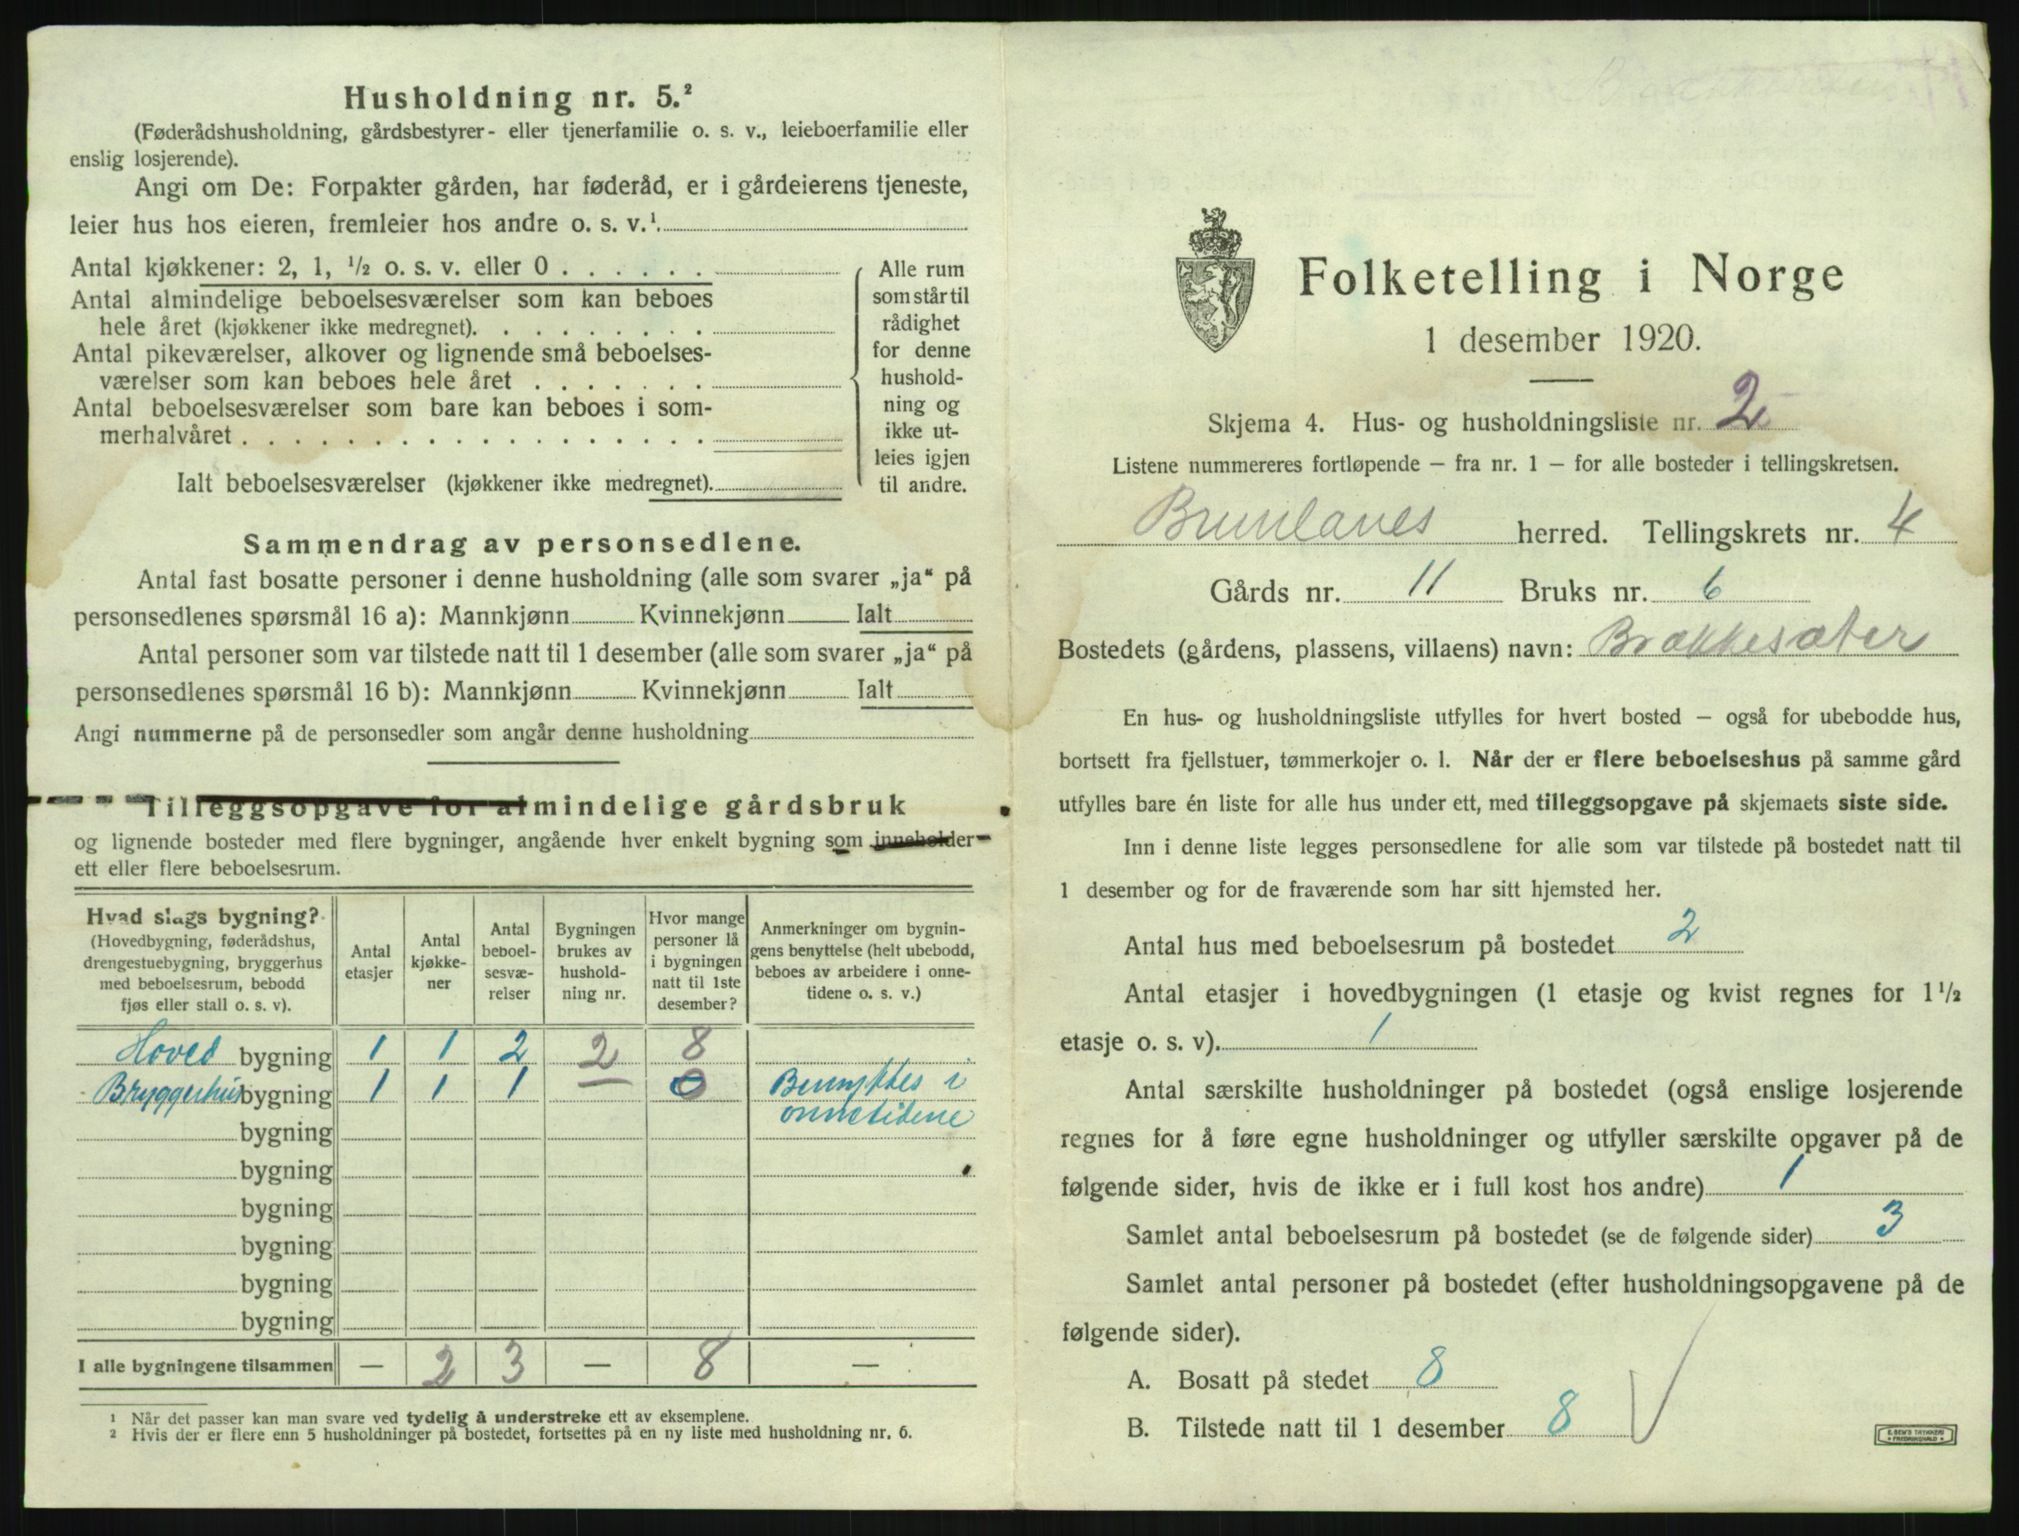 Husholdning nr. 5.²
(Føderådshusholdning, gårdsbestyrer- eller tjenerfamilie o. s. v., leieboerfamilie eller
enslig losjerende).
Angi om De: Forpakter gården, har føderåd, er i gårdeierens tjeneste,
leier hus hos eieren, fremleier hos andre o. s. v.¹.
Antal kjøkkener: 2, 1, ½ o. s. v. eller 0 . . . . . .
Antal almindelige beboelsesværelser som kan beboes
hele året (kjøkkener ikke medregnet). . . . . . . . .
Antal pikeværelser, alkover og lignende små beboelses-
værelser som kan beboes hele året . . . . . . .
Antal beboelsesværelser som bare kan beboes i som-
merhalvåret . . . . . . . . . . . . . . . . . .
Alle rum
som står til
rådighet
for denne
hushold-
ning og
ikke ut-
leies igjen
til andre.
Ialt beboelsesværelser (kjøkkener ikke medregnet).
Sammendrag av personsedlene.
Antal fast bosatte personer i denne husholdning (alle som svarer „ja“ på
personsedlenes spørsmål 16 a): Mannkjønn Kvinnekjønn Ialt
Antal personer som var tilstede natt til 1 desember (alle som svarer „ja“ på
personsedlenes spørsmål 16 b): Mannkjønn Kvinnekjønn Ialt
Angi nummerne på de personsedler som angår denne husholdning
Tilleggsopgave for almindelige gårdsbruk
og lignende bosteder med flere bygninger, angående hver enkelt bygning som inneholder
ett eller flere beboelsesrum.
Hvad slags bygning?
(Hovedbygning, føderådshus,
drengestuebygning, bryggerhus
med beboelsesrum, bebodd
fjøs eller stall o. s. v).
Antal
etasjer
Antal
kjøkke-
ner
Antal
beboel-
sesvæ-
relser
Bygningen
brukes av
hushold-
ning nr.
Hvor mange
personer lå
i bygningen
natt til 1ste
desember?
Anmerkninger om bygnin-
gens benyttelse (helt ubebodd,
beboes av arbeidere i onne-
tidene o. s. v.)
Hoved bygning 1 1 2 2 8
Bryggerhus bygning 1 1 1 — 0 Benyttes i
bygning onnetidene
bygning
bygning
bygning
bygning
bygning
I alle bygningene tilsammen — 2 3 — 8 —
¹ Når det passer kan man svare ved tydelig å understreke ett av eksemplene.
² Hvis der er flere enn 5 husholdninger på bostedet, fortsettes på en ny liste med husholdning nr. 6.
Folketelling i Norge
1 desember 1920.
Skjema 4. Hus- og husholdningsliste nr. 2
Listene nummereres fortløpende – fra nr. 1 – for alle bosteder i tellingskretsen.
Brunlanes herred. Tellingskrets nr. 4
Gårds nr. 11 Bruks nr. 6
Bostedets (gårdens, plassens, villaens) navn: Brækkesæter
En hus- og husholdningsliste utfylles for hvert bosted – også for ubebodde hus,
bortsett fra fjellstuer, tømmerkojer o. l. Når der er flere beboelseshus på samme gård
utfylles bare én liste for alle hus under ett, med tilleggsopgave på skjemaets siste side.
Inn i denne liste legges personsedlene for alle som var tilstede på bostedet natt til
1 desember og for de fraværende som har sitt hjemsted her.
Antal hus med beboelsesrum på bostedet 2
Antal etasjer i hovedbygningen (1 etasje og kvist regnes for 1½
etasje o. s. v). 1
Antal særskilte husholdninger på bostedet (også enslige losjerende
regnes for å føre egne husholdninger og utfyller særskilte opgaver på de
følgende sider, hvis de ikke er i full kost hos andre) 1
Samlet antal beboelsesrum på bostedet (se de følgende sider) 3
Samlet antal personer på bostedet (efter husholdningsopgavene på de
følgende sider).
A. Bosatt på stedet 8
B. Tilstede natt til 1 desember 8